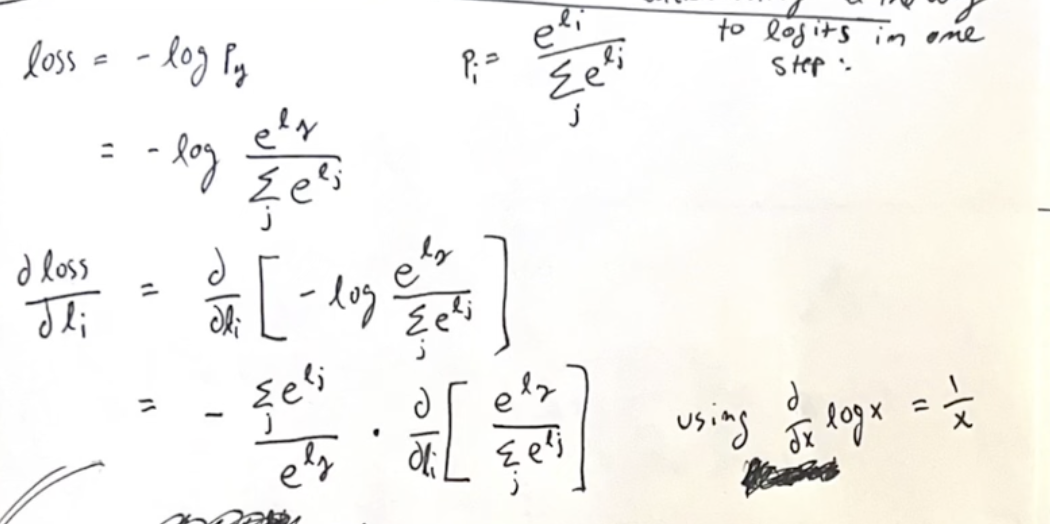 to logits in one
step:
loss = - log P_y        P_i = e^{l_i} / Σ_j e^{l_j}
= - log e^{l_y} / Σ_j e^{l_j}
∂ loss / ∂ l_i = ∂ / ∂l_i [ - log e^{l_y} / Σ_j e^{l_j} ]
= - Σ_j e^{l_j} / e^{l_y} · ∂ / ∂l_i [ e^{l_y} / Σ_j e^{l_j} ]        using ∂/∂x log x = 1/x